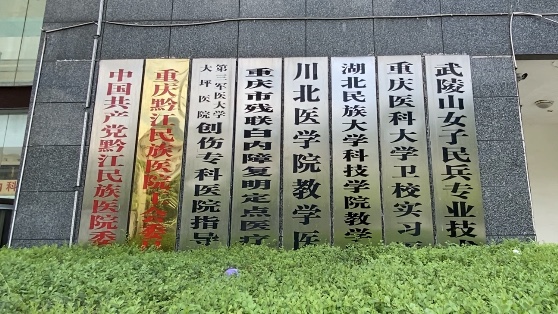 中国共产党黔江民族医院委
重庆黔江民族医院工会委
第三军医大学
大坪医院
创伤专科医院指导
重庆市残联白内障复明定点医疗
川北医学院教学医
湖北民族大学科技学院教学
重庆医科大学卫校实习
武陵山女子民兵专业技
科